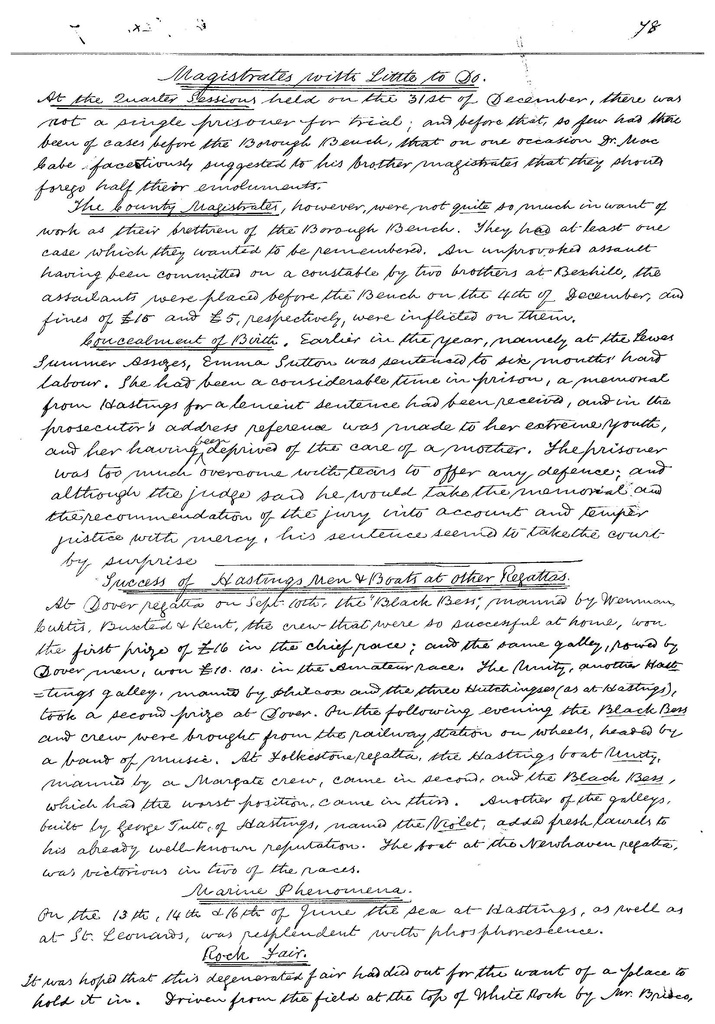 78
Magistrates with Little to Do.
At the Quarter Sessions held on the 31st of December, there was
not a single prisoner for trial; and before that, so few had there
been of cases before the Borough Bench, that on one occasion Dr. Mac
Cabe facetiously suggested to his brother magistrates that they should
forego half their emoluments.
The County Magistrates, however, were not quite so much in want of
work as their brethren of the Borough Bench. They had at least one
case which they wanted to be remembered. An unprovoked assault
having been committed on a constable by two brothers at Bexhill, the
assailants were placed before the Bench on the 4th of December, and
fines of £15 and £5, respectively, were inflicted on them.
Concealment of Birth. Earlier in the year, namely at the Lewes
Summer Assizes, Emma Sutton was sentenced to six months' hard
labour. She had been a considerable time in prison, a memorial
from Hastings for a lenient sentence had been received, and in the
prosecutor's address reference was made to her extreme youth,
and her having been deprived of the care of a mother. The prisoner
was too much overcome with tears to offer any defence; and
although the judge said he would take the memorial and
the recommendation of the jury into account and temper
justice with mercy, his sentence seemed to take the court
by surprise
Success of Hastings Men & Boats at other Regattas.
At Dover regatta on Sept. 10th, the "Black Bess", manned by Wenman,
Curtis, Busted & Kent, the crew that were so succesful at home, won
the first prize of £16 in the chief race; and the same galley, rowed by
Dover men, won £10. 10s. in the Amateur race. The Unity, another Hast-
=tings galley, manned by Philcox and the three Hutchingses (as at Hastings),
took a second prize at Dover. On the following evening the Black Bess
and crew were brought from the railway station on wheels, headed by
a band of music. At Folkestone regatta, the Hastings boat Unity,
manned by a Margate crew, came in second, and the Black Bess,
which had the worst position, came in third. Another of the galleys,
built by George Tutt, of Hastings, named the Violet, added fresh laurels to
his already well-known reputation. The boat at the Newhaven regatta,
was victorious in two of the races.
Marine Phenomena.
On the 13th, 14th & 16th of June the sea at Hastings, as well as
at St. Leonards, was resplendent with phosphorescence.
Rock Fair.
It was hoped that this degenerated fair had died out for the want of a place to
hold it in. Driven from the field at the top of White Rock by Mr. Brisco,